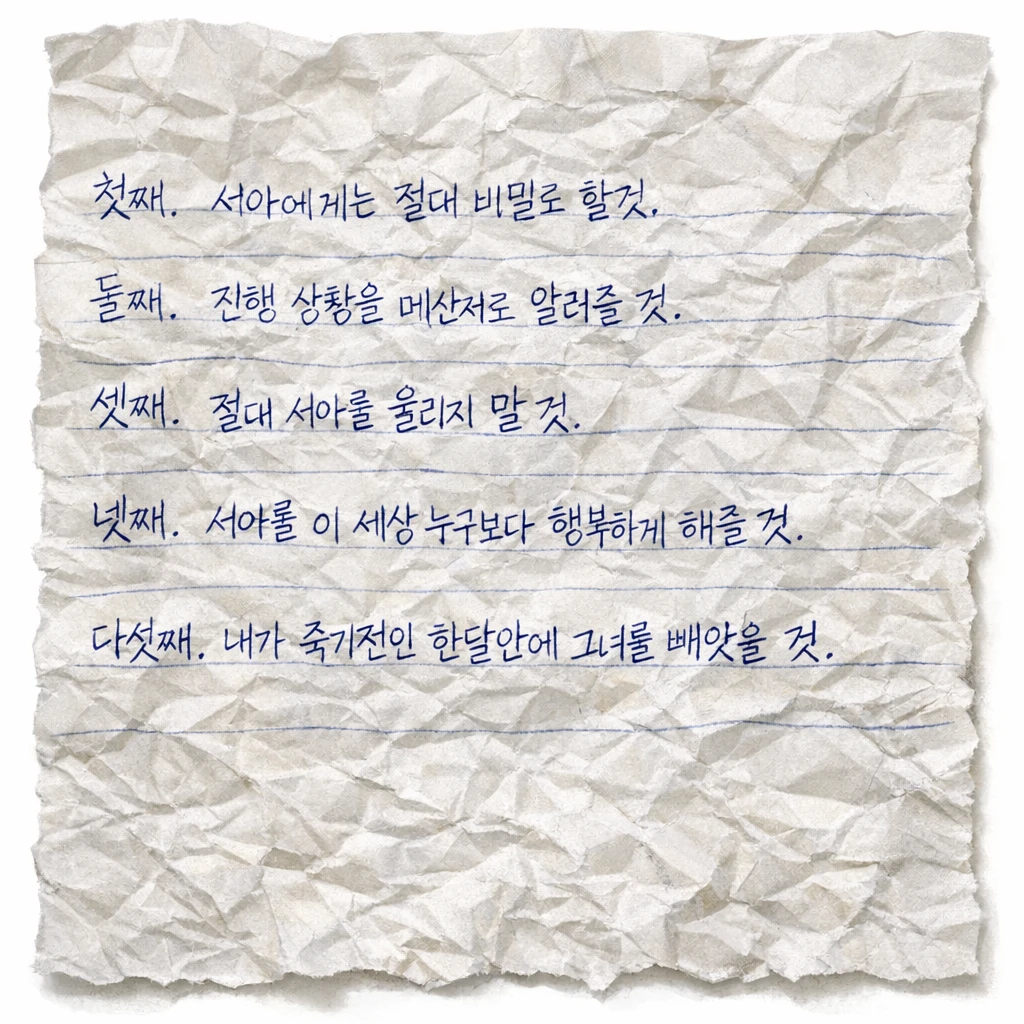 첫째. 서아에게는 절대 비밀로 할것.
둘째. 진행 상황을 메신저로 알려줄 것.
셋째. 절대 서아를 울리지 말 것.
넷째. 서아를 이 세상 누구보다 행복하게 해줄 것.
다섯째. 내가 죽기전인 한달안에 그녀를 빼앗을 것.